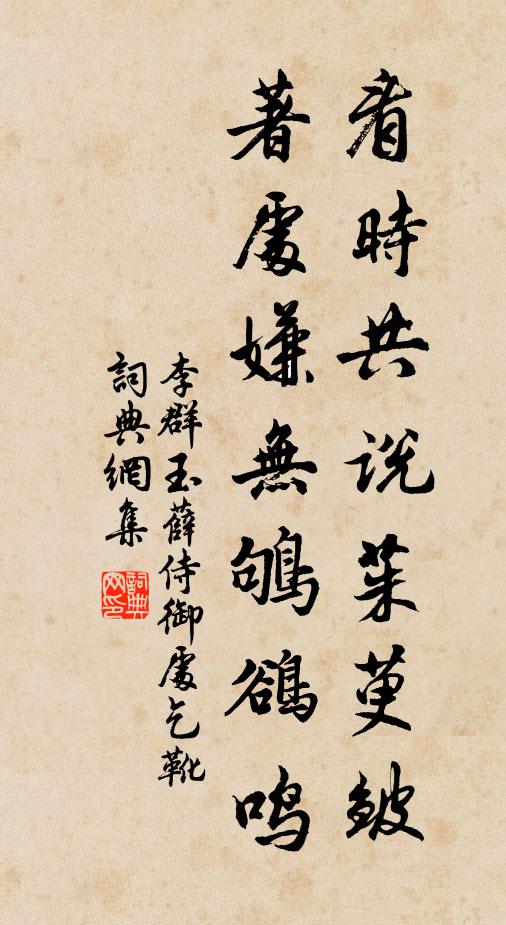 看時共説茱萸皺
著處嫌無鴝鵒鳴
李群玉薛侍御處乞靴
詞典網集
詞典
网印